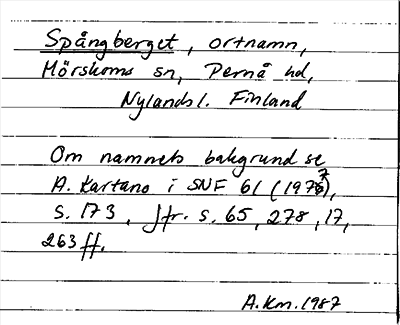 Spångberget, ortnamn,
Mörskoms sn, Pernå hd,
Nylands l. Finland
Om namnets bakgrund se
A. Kartano i SNF 61 (1977),
s. 173, Jfr. s. 65, 278, 17,
263 ff.
A.Km. 1987